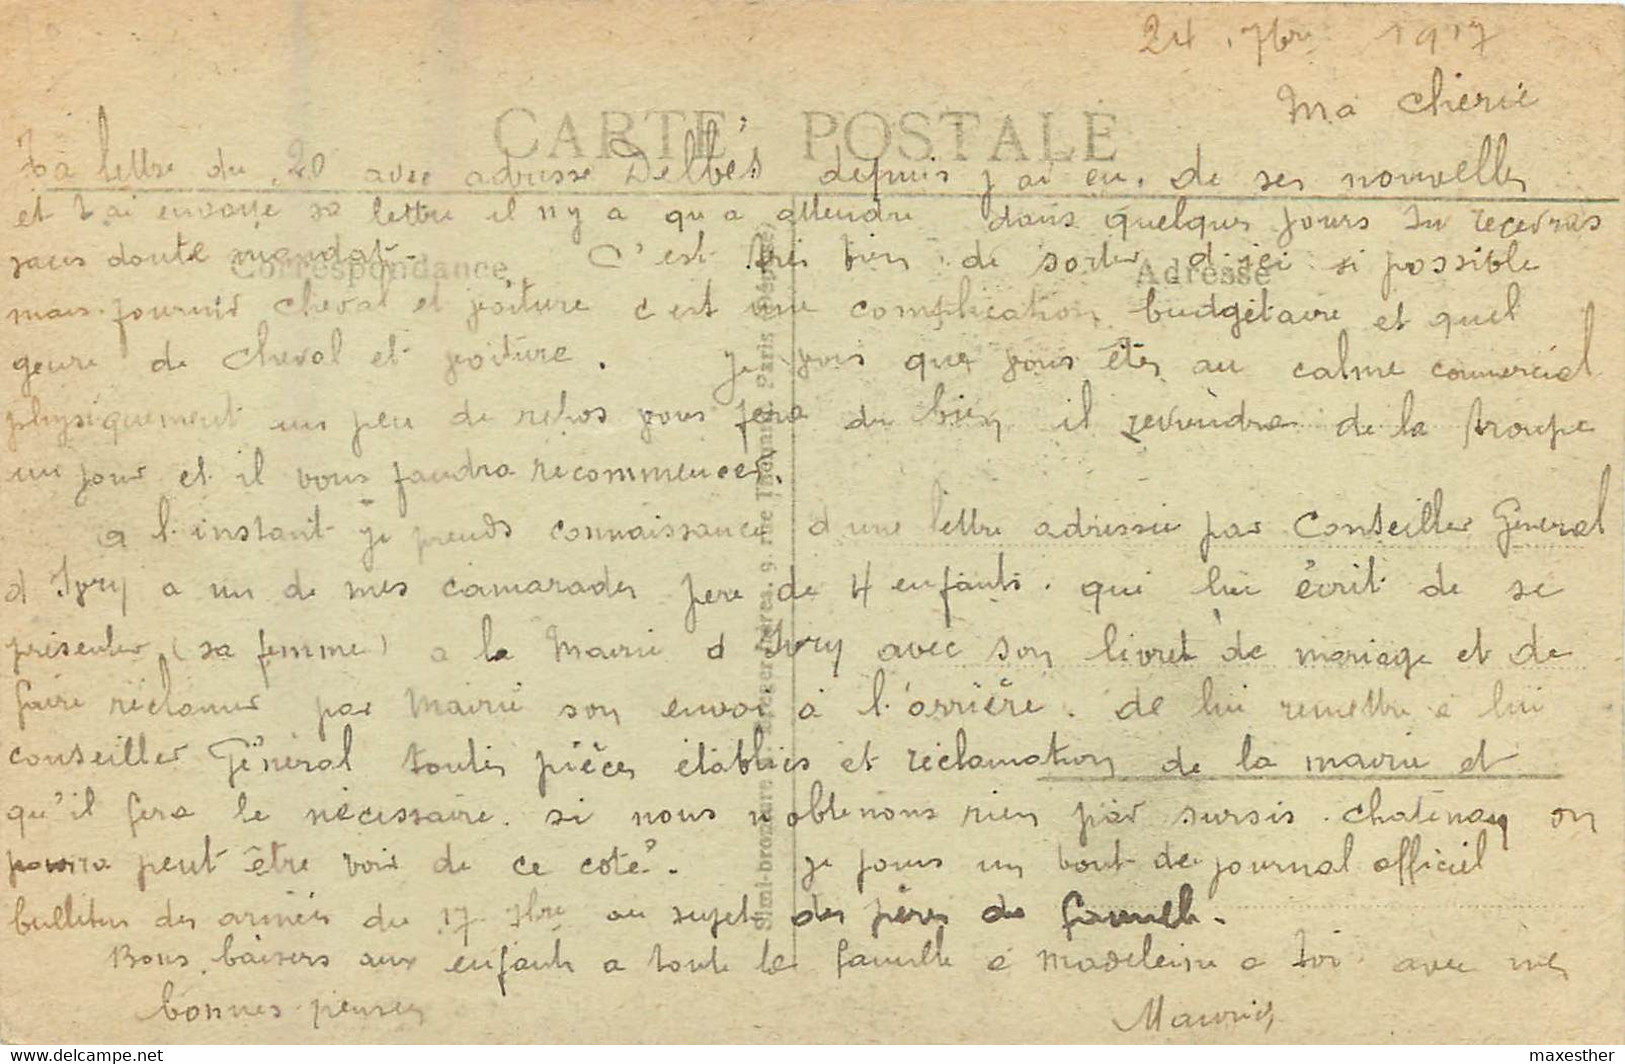 24 7bre 1917
Ma chérie
CARTE POSTALE
Ta lettre du 20 avec adresse Delbes depuis j ai eu de ses nouvelles
et t ai envoye sa lettre il n y a qu a attendre dans quelques jours tu recevras
sans doute mandat. C'est très bien de sortir d ici si possible
Correspondance Adresse
mais fournir cheval et voiture c est une complication budgétaire et quel
genre de cheval et voiture. Je vois que vous êtes au calme commercial
physiquement un peu de repos vous fera du bien il reviendra de la troupe
un jour et il vous faudra recommencer.
a l instant je prends connaissance d une lettre adressée par Conseiller Général
d Ivry a un de mes camarades pere de 4 enfants. qui lui écrit de se
présenter (sa femme) a la Mairie d Ivry avec son livret de mariage et de
faire réclamer par Mairie son envoi à l'arrière. de lui remettre a lui
conseiller Général toutes pièces établies et réclamation de la mairie et
qu'il fera le nécessaire. si nous n obtenons rien par sursis chatenay on
pourra peut être voir de ce coté. je joins un bout de journal officiel
bulletin des armées du 17 7bre au sujet des pères de famille.
Bons baisers aux enfants a toute la famille a Madeleine a toi avec mes
bonnes pensées
Maurice
maxesther